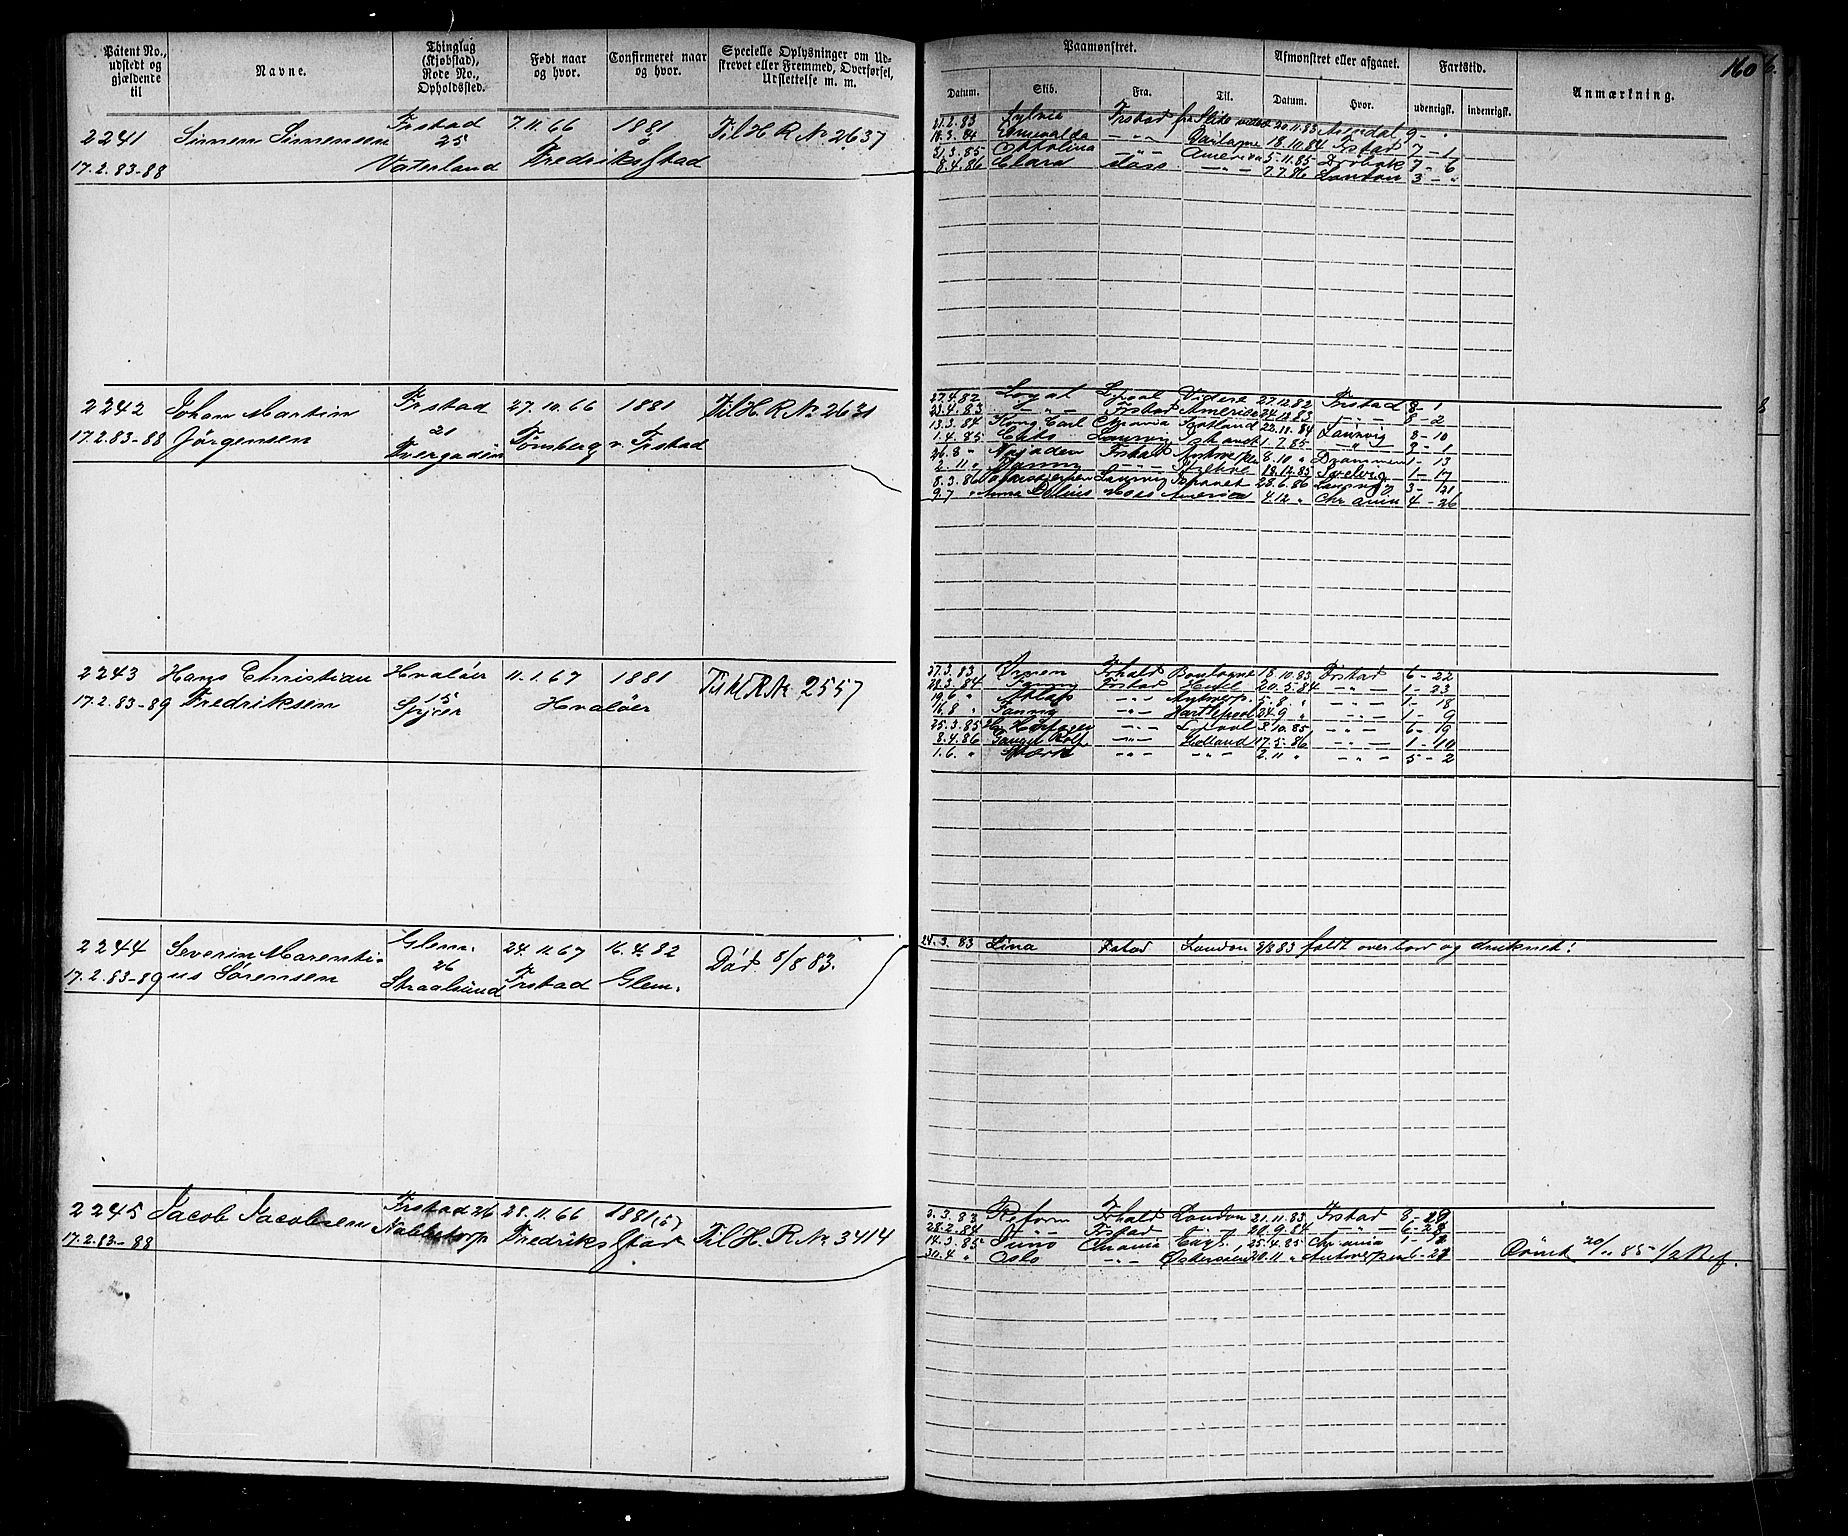 Patent No., udstedt og gjældende til
Navne.
Thinglag (Kjøbstad), Rode No., Opholdssted.
Født naar og hvor.
Confirmeret naar og hvor.
Specielle Oplysninger om Udskrevet eller Fremmed, Overførsel, Udslettelse m. m.
Paamønstret.
Afmønstret eller afgaaet.
Fartstid.
Anmærkning.
160
Datum. Skib. Fra. Til. Datum. Hvor. udenrigsk. indenrigsk.
2241 Simen Simensen Frstad 7.11.66 1881 Til H. R. No 2637
25
17.2.83-88 Vaterland Fredriksstad
21.2.83 Sylvia Frstad 20.11.83 Arendal 9 - "
14.3.84 Esmeralda - " - 18.10.84 Frstad 7 - 1
31.3.85 Ottolina - " - America 5.11.85 Drøbak 7 - 6
8.4.86 Clara Moss - " - 2.7.86 London 3 - "
2242 Johan Martin Frstad 27.10.66 1881 Til H. R. No 2631
21
17.2.83-88 Jørgensen Tønsberg v. Frstad
27.4.82 Loyal 27.12.82 Frstad 8 - 1
23.4.83 - " - Frstad America 24.12.83 - " - 8 - 2
13.3.84 Kong Carl Chrania 22.11.84 Laurvig 8 - 10
1.4.85 Laurvig 1.7.85 - " - 9 - 1
26.8 " Najaden Frstad Antwerpen 8.10 " Drammen 1 - 13
2.11 " Fanny - " - 18.12.85 Svelvig 1 - 17
8.3.86 Laurvig 28.6.86 Laurvig 3 - 21
9.7 " Anna Delius Moss America 4.12 " Chrania 4 - 26
2243 Hans Christian Hvaløer 11.1.67 1881 Til H. R. No 2557
15
17.2.83-89 Fredriksen Spjær Hvaløer
27.3.83 Ørnen Frhald Boulogne 18.10.83 Frstad 6 - 22
28.3.84 Fanny Frstad Hull 20.5.84 - " - 1 - 23
19.6 " Atlas - " - Antwerp 5.8 " - " - 1 - 18
16.8 " Fanny - " - Hartlepool 24.9 " - " - 1 - 9
25.3.85 - " - Lpool 3.10.85 - " - 6 - 19
8.4.86 Ganger Rolf - " - Holland 17.5.86 - " - 1 - 10
1.6. " - " - - " - 2.11 " - " - 5 - 2
2244 Severin Marenti- Glem. 24.11.67 16.4.82 Død 8/8 83.
26
17.2.83-89 us Sørensen Straalsund Frstad Glem.
24.3.83 Lina Frstad London 8/8 83 faldt overbord og druknet!
2245 Jacob Jacobsen Frstad 26 28.11.66 1881(5) Til H. R. No 3414
17.2.83-88 Nabbetorp Fredriksstad
2.3.83 Reform Frhald London 21.11.83 Frstad 8 - 29
28.2.84 - " - Frstad 20.9.84 - " - 6 - 28
14.3.85 Juno Chrania Engl. 25.4.85 Chrania 1 - 8
30.4 " Oslo - " - Østersøen 20.11 " Antwerpen 6 - 21 Rømt 20/11 85